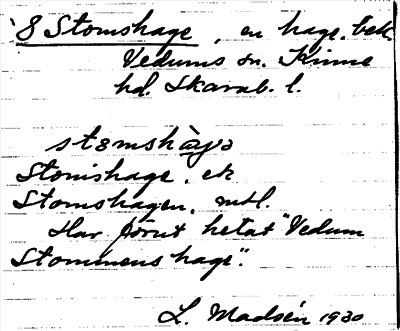 8 Stomshage, en hage, bek.
Vedums sn. Kinne
hd. Skarab. l.
stɵmshàgɘ
Stomshage, ek
Stomshagen, mtl.
Har förut hetat "Vedum
Stommens hage".
L. Madsén 1930